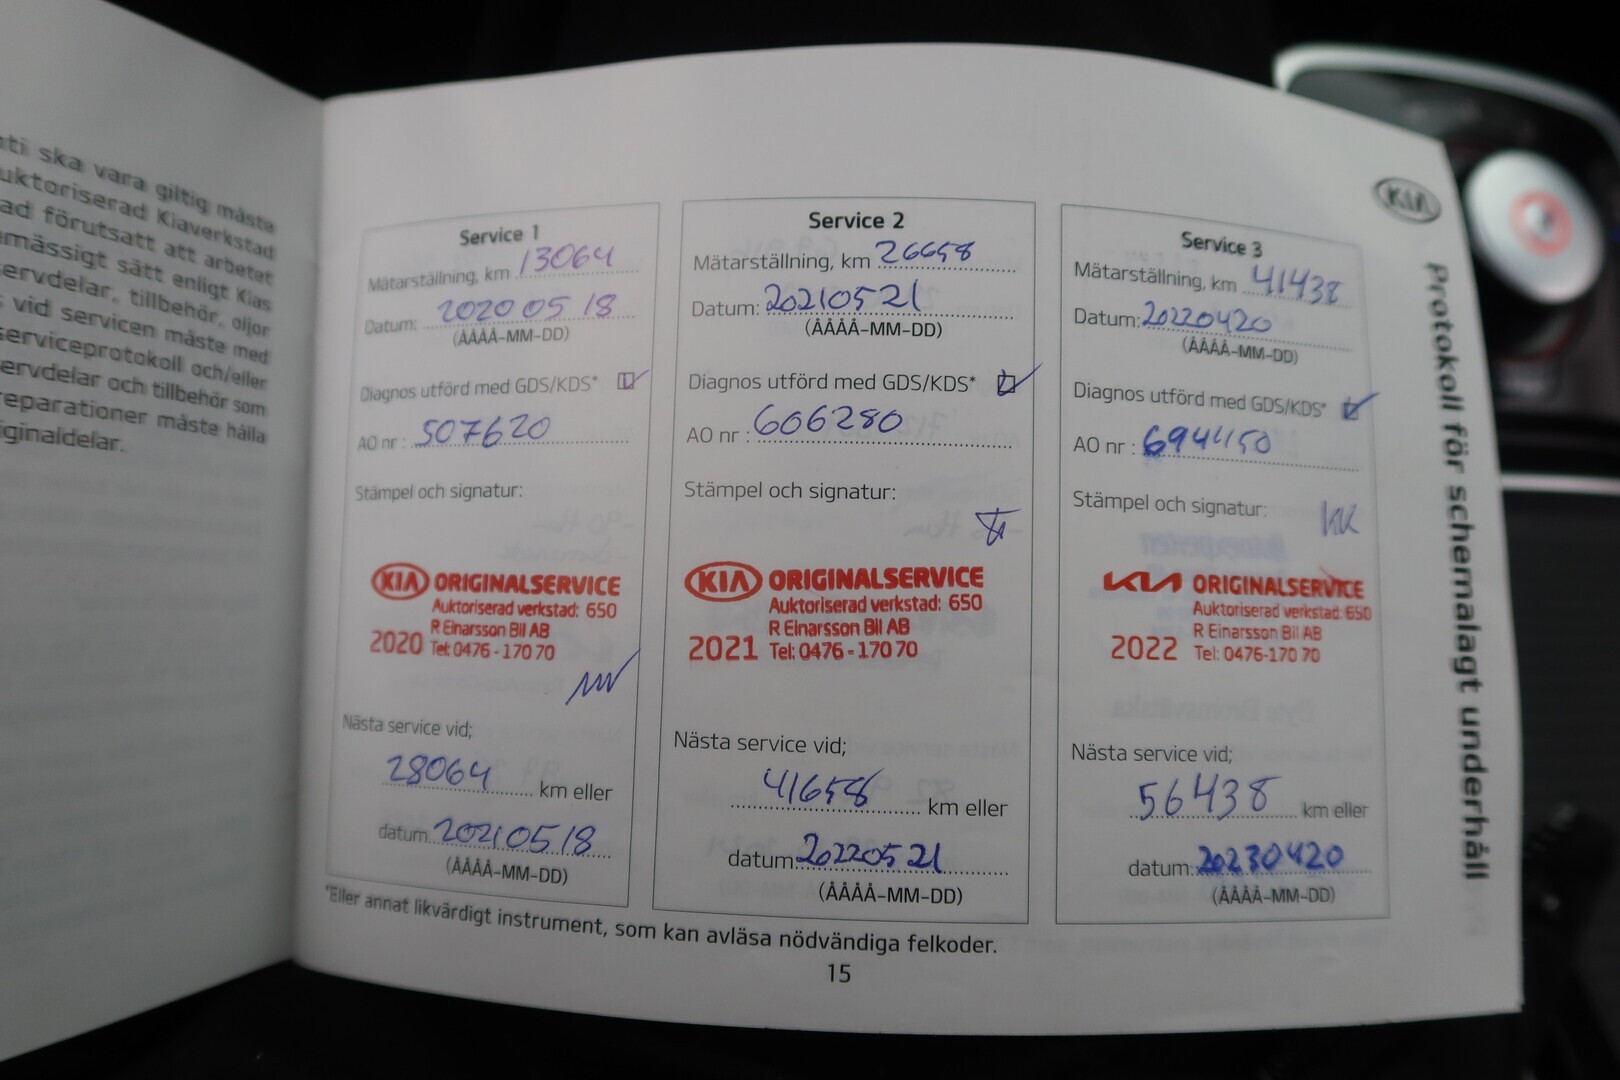 ti ska vara giltig måste
uktoriserad Kiaverkstad
ad förutsatt att arbetet
mässigt sätt enligt Kias
servdelar, tillbehör, oljor
vid servicen måste med
serviceprotokoll och/eller
ervdelar och tillbehör som
reparationer måste hålla
iginaldelar.
KIA
Protokoll för schemalagt underhåll
Service 1
Mätarställning, km 13064
Datum: 2020 05 18
(ÅÅÅÅ-MM-DD)
Diagnos utförd med GDS/KDS*
AO nr : 507620
Stämpel och signatur:
KIA ORIGINALSERVICE
Auktoriserad verkstad: 650
R Einarsson Bil AB
2020 Tel: 0476 - 170 70
Nästa service vid;
28064 km eller
datum. 20210518
(ÅÅÅÅ-MM-DD)
Service 2
Mätarställning, km 26658
Datum: 20210521
(ÅÅÅÅ-MM-DD)
Diagnos utförd med GDS/KDS*
AO nr : 606280
Stämpel och signatur:
KIA ORIGINALSERVICE
Auktoriserad verkstad: 650
R Einarsson Bil AB
2021 Tel: 0476 - 170 70
Nästa service vid;
41658 km eller
datum. 20220521
(ÅÅÅÅ-MM-DD)
Service 3
Mätarställning, km 41438
Datum: 20220420
(ÅÅÅÅ-MM-DD)
Diagnos utförd med GDS/KDS*
AO nr : 694450
Stämpel och signatur:
KK
KIA ORIGINALSERVICE
Auktoriserad verkstad: 650
R Einarsson Bil AB
2022 Tel: 0476-170 70
Nästa service vid;
56438 km eller
datum. 20230420
(ÅÅÅÅ-MM-DD)
*Eller annat likvärdigt instrument, som kan avläsa nödvändiga felkoder.
15